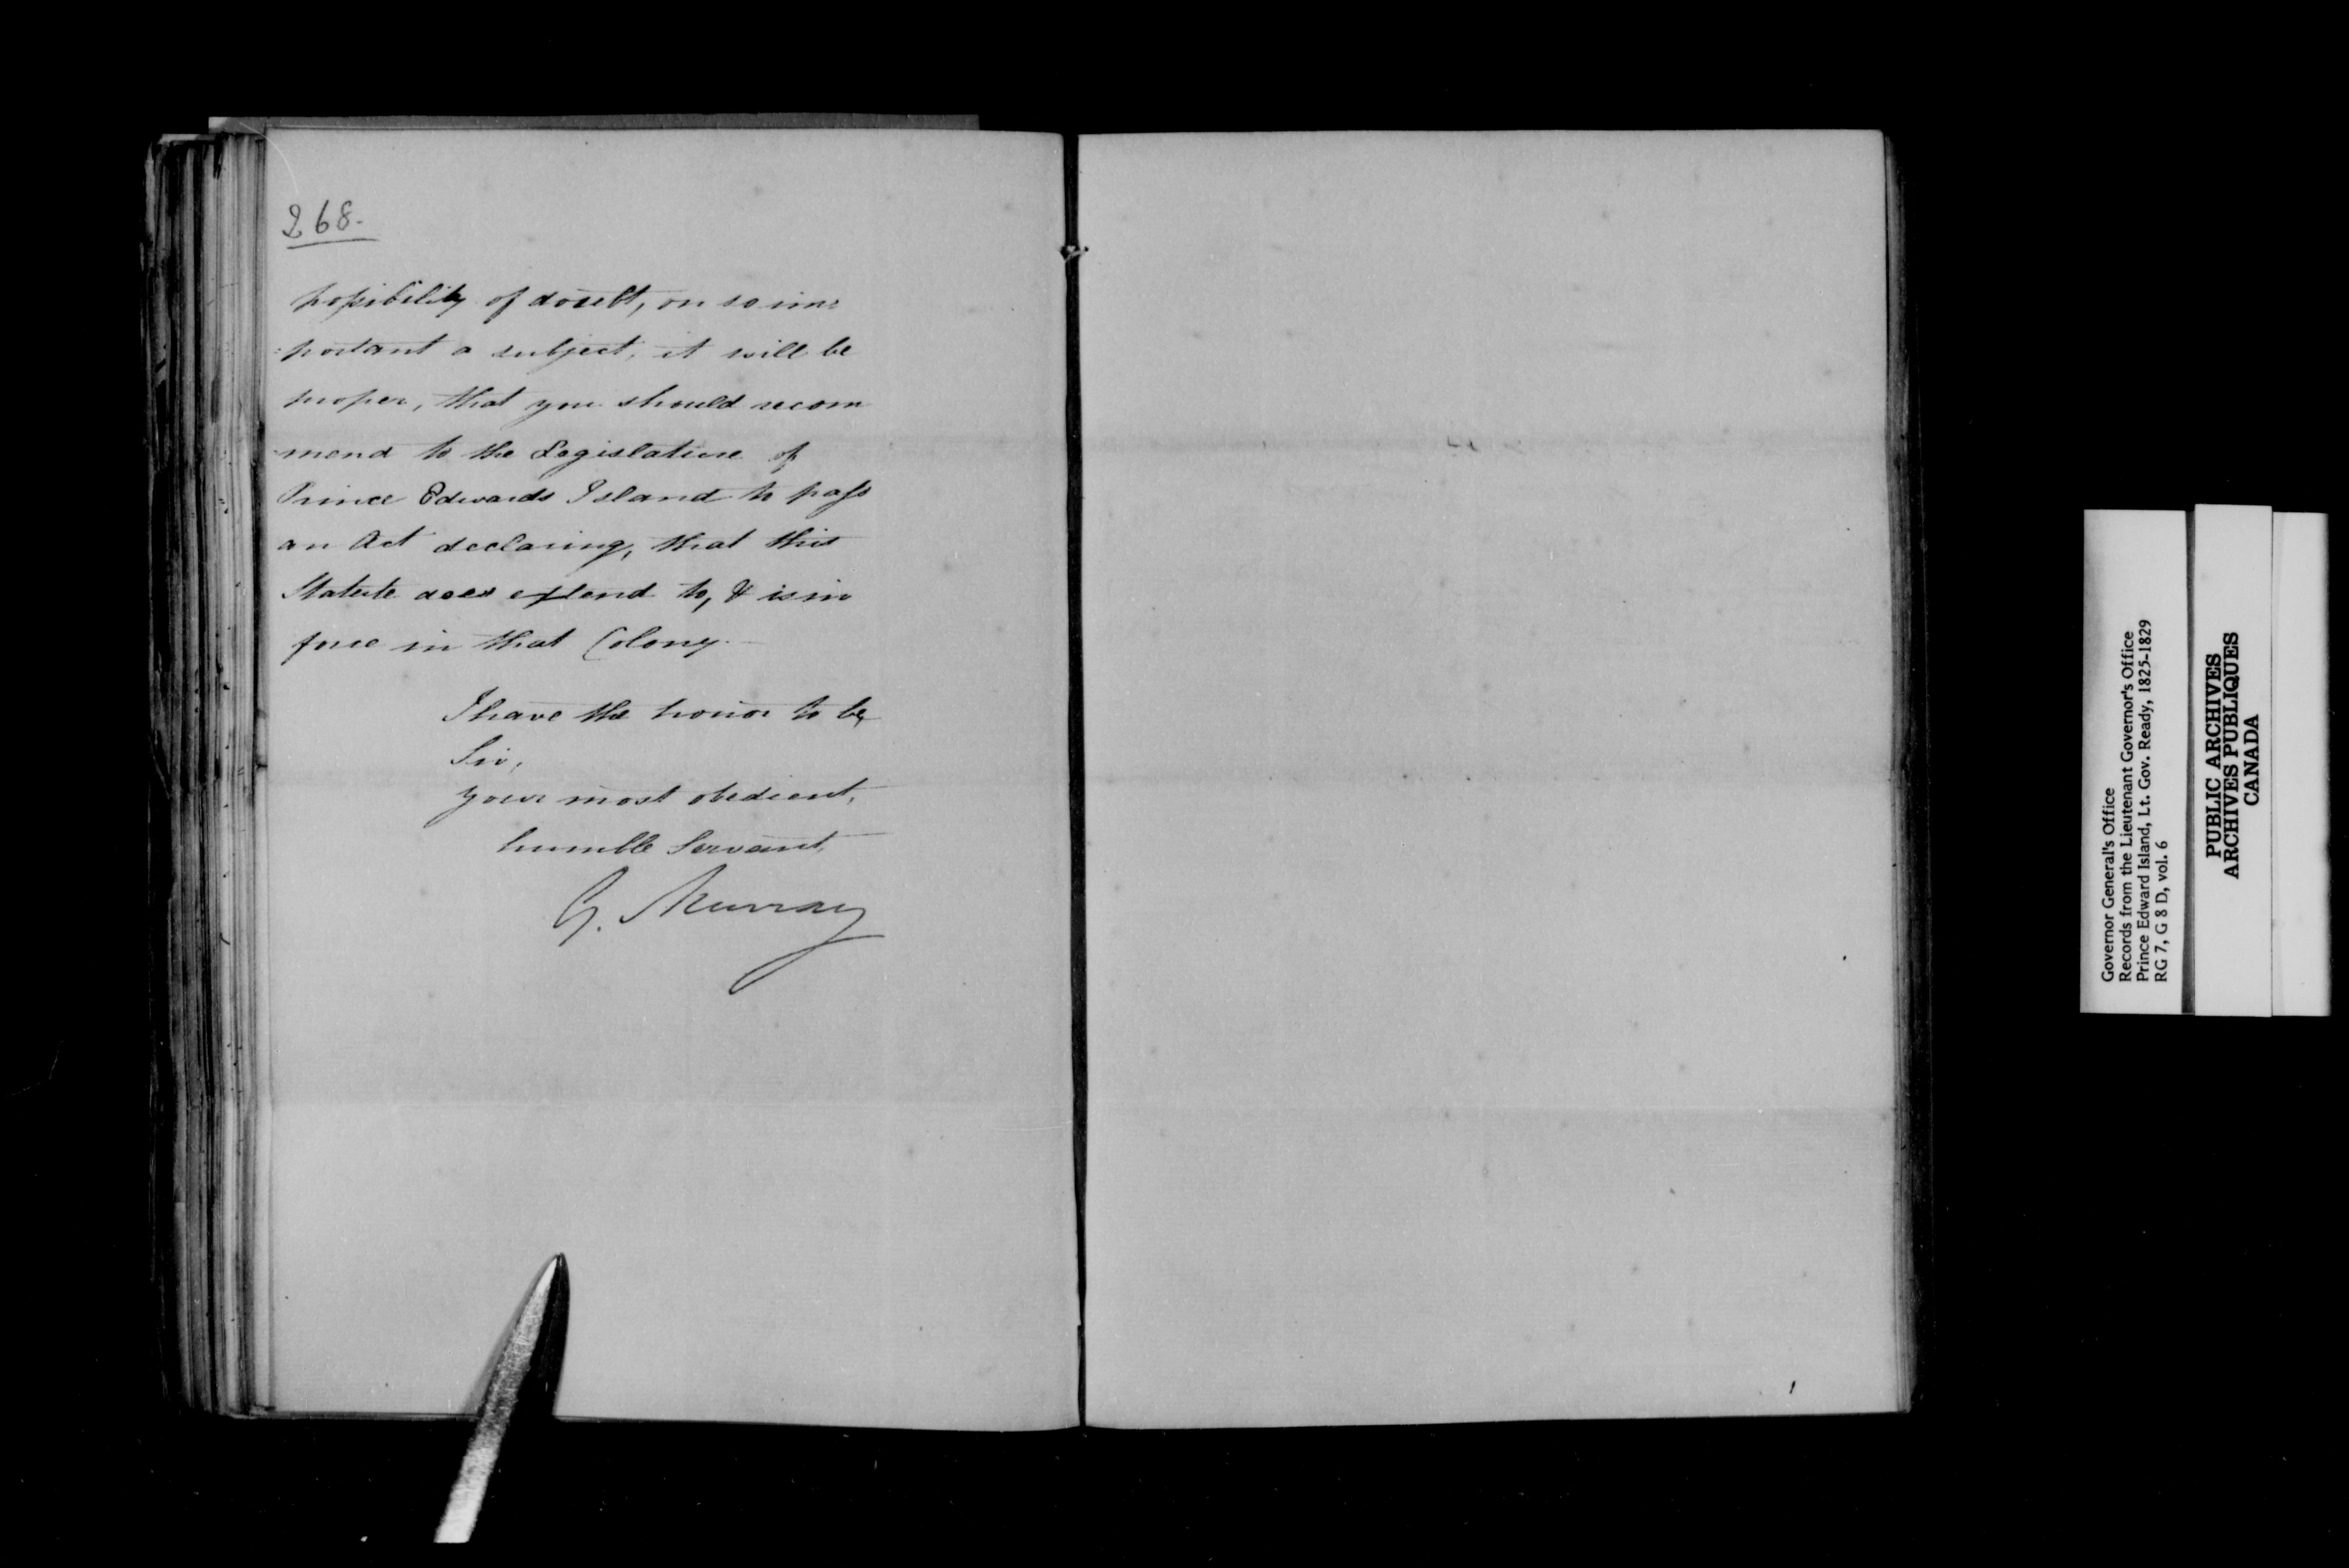 268.
possibility of doubt, on so im=
=portant a subject, it will be
proper, that you should recom
=mend to the Legislature of
Prince Edwards Island to pass
an Act declaring, that this
Statute does extend to, & is in
force in that Colony.—
I have the honor to be,
Sir,
your most obedient,
humble Servant,
G. Murray
Governor General's Office
Records from the Lieutenant Governor's Office
Prince Edward Island, Lt. Gov. Ready, 1825-1829
RG 7, G 8 D, vol. 6
PUBLIC ARCHIVES
ARCHIVES PUBLIQUES
CANADA